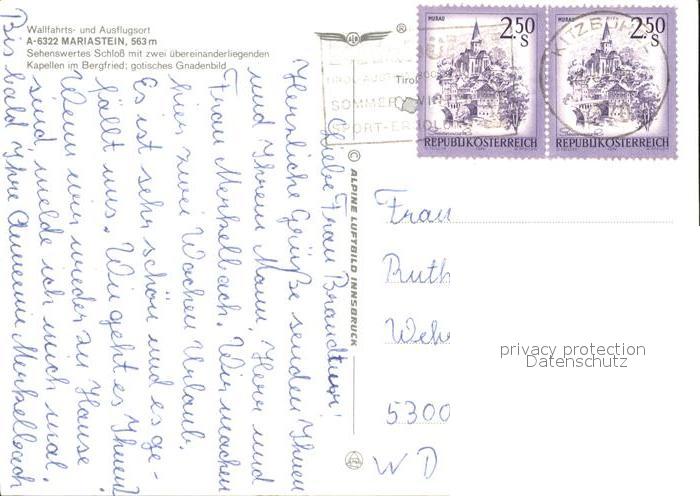 Wallfahrts- und Ausflugsort
A-6322 MARIASTEIN, 563 m
Sehenswertes Schloß mit zwei übereinanderliegenden
Kapellen im Bergfried; gotisches Gnadenbild
Tirol
®
MURAU
2.50
S
REPUBLIK ÖSTERREICH
MURAU
2.50
S
REPUBLIK ÖSTERREICH
KITZBÜH
SOMMER WIN
SPORT-ERHOL
© ALPINE LUFTBILD INNSBRUCK
Liebe Frau
Herzliche Grüße senden Ihnen
und Ihrem Mann, Herr und
Frau Merkelbach. Wir machen
hier zwei Wochen Urlaub.
Es ist sehr schön und es ge-
fällt uns. Wie geht es Ihnen?
Wenn wir wieder zu Hause
sind, melde ich mich mal.
Bis bald Ihre Annemie Merkelbach
Frau
Ruth
Wehe
5300
WD
privacy protection
Datenschutz